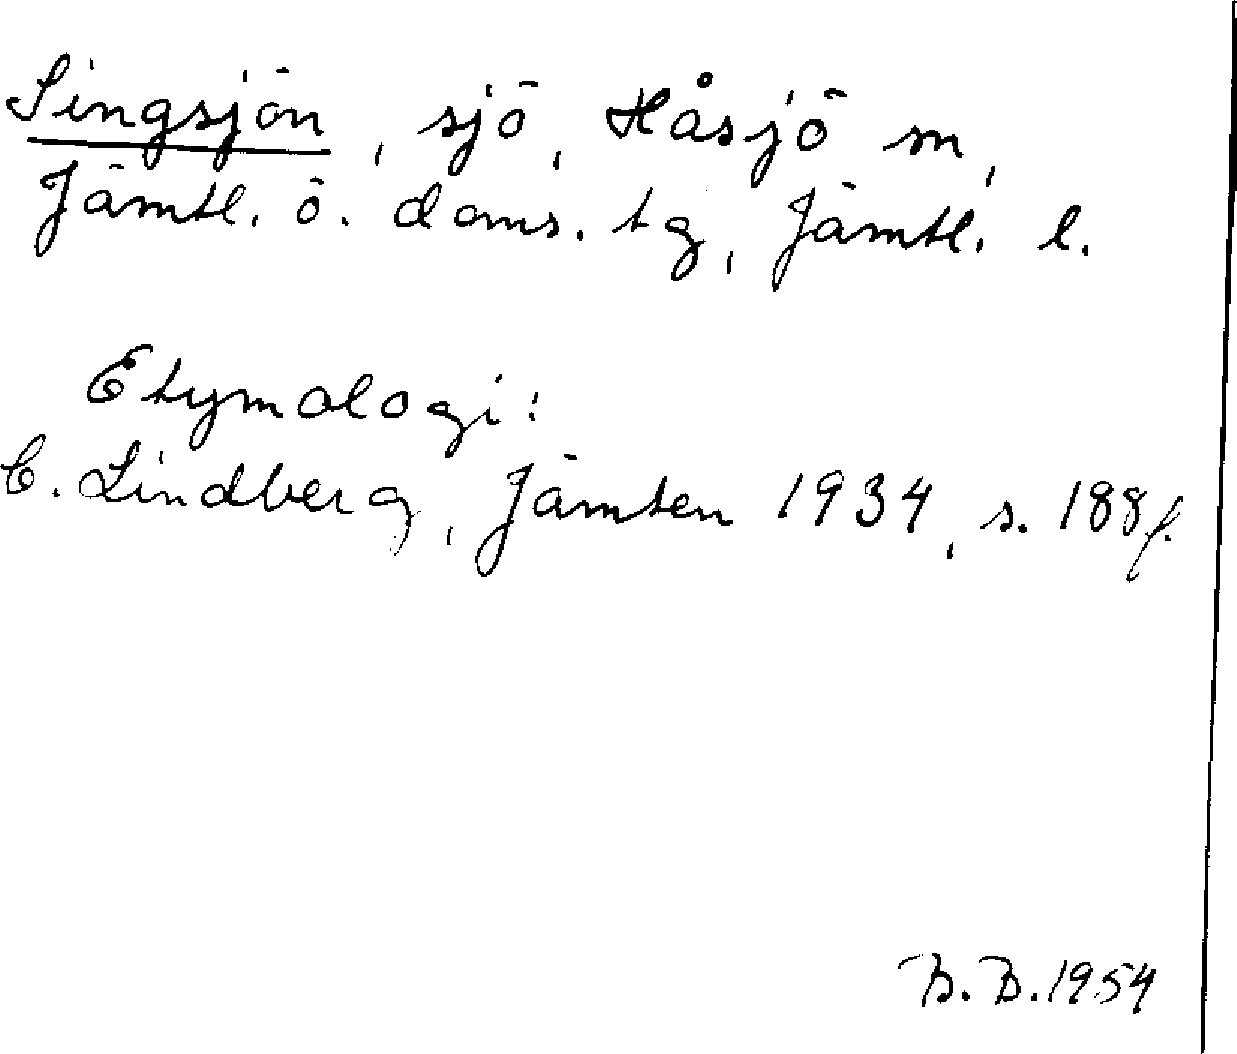 Singsjön, sjö, Håsjö sn,
Jämtl. ö. doms. tg, Jämtl. l.
Etymologi:
C. Lindberg, Jämten 1934, s. 188 f.
B. B. 1954